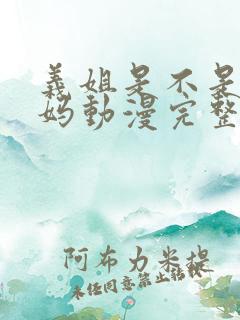 義姐是不是
妈動漫完整
阿布力米提
未经同意禁止转载